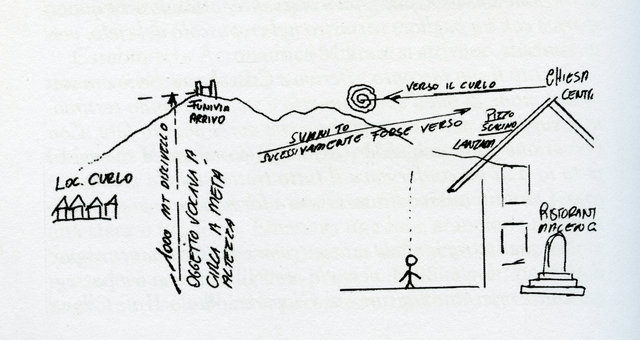 CHIESA
CENTR.
VERSO IL CURLO
FUNIVIA
ARRIVO
SUBITO
SUCESSIVAMENTE FORSE VERSO
LANZADA
PIZZO
SCALINO
LOC. CURLO
1000 MT DISLIVELLO
OGGETTO VOLAVA A
CIRCA A METÁ
ALTEZZA
RISTORANT